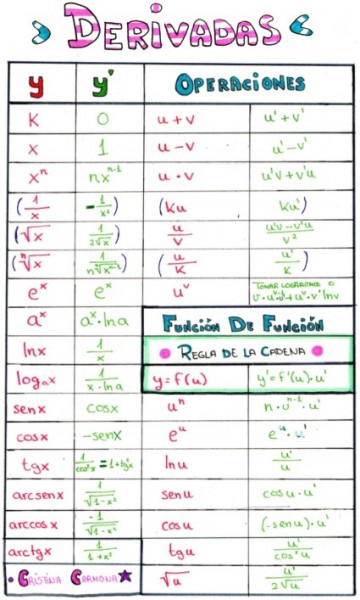 DERIVADAS
y y' OPERACIONES
K 0 u + v u' + v'
x 1 u - v u' - v'
xⁿ nxⁿ⁻¹ u · v u'v + v'u
(1/x -1/x²) (Ku Ku')
(√x 1/2√x) u/v u'v - v'u/v²
(ⁿ√x 1/n ⁿ√xⁿ⁻¹) (u/K u'/K)
eˣ eˣ uᵛ TOMAR LOGARITMOS O
v · uᵛ⁻¹ · u' + uᵛ · v' lnu
aˣ aˣ · ln a FUNCIÓN DE FUNCIÓN
lnx 1/x REGLA DE LA CADENA
logₐx 1/x · ln a y = f(u) y' = f'(u) · u'
senx cosx uⁿ n · uⁿ⁻¹ · u'
cosx -senx eᵘ eᵘ · u'
tgx 1/cos²x = 1 + tg²x lnu u'/u
arcsenx 1/√1-x² senu cosu · u'
arccosx -1/√1-x² cosu (-senu) · u'
arctgx 1/1+x² tgu u'/cos²u
CRISTINA CARMONA √u u'/2√u